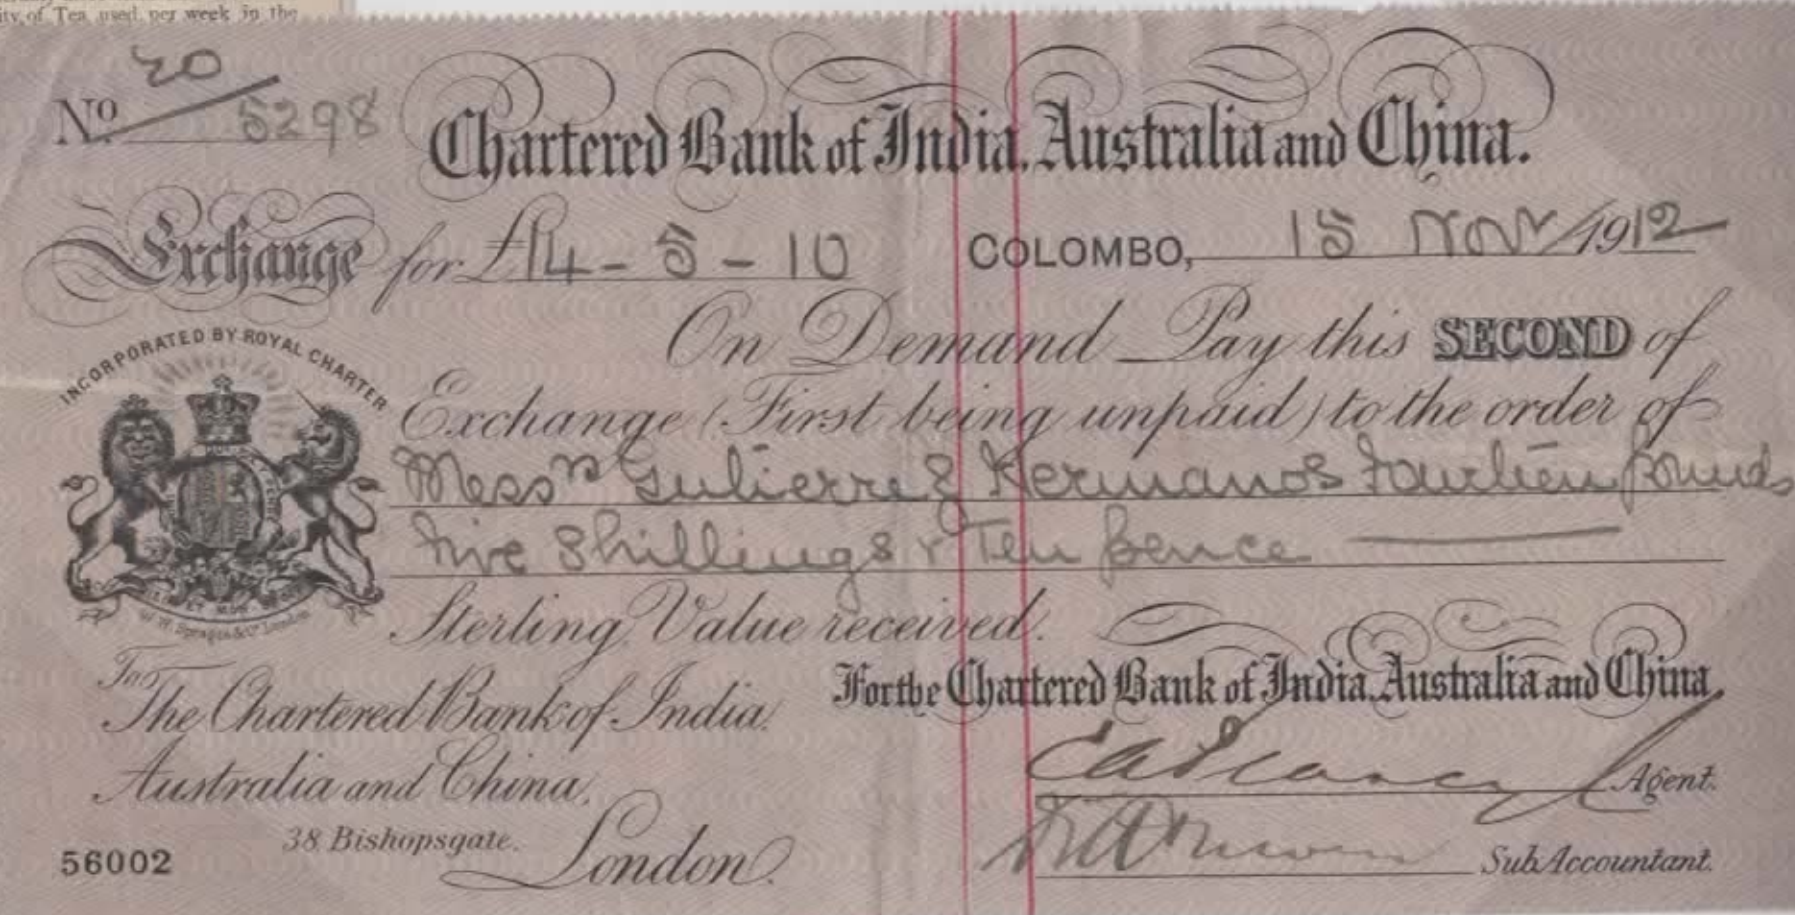 ity of Tea used per week in the
No. 20/5298
Chartered Bank of India, Australia and China.
Exchange for £14-5-10 COLOMBO, 15 Novr 1912
On Demand Pay this SECOND of
Exchange (First being unpaid) to the order of
Messrs Gutierrez Hermanos Fourteen pounds
five shillings & Ten pence
Sterling Value received.
INCORPORATED BY ROYAL CHARTER
W. W. Sprague & Co. London
To
The Chartered Bank of India.
Australia and China.
38 Bishopsgate. London.
56002
For the Chartered Bank of India, Australia and China.
Agent.
Sub Accountant.